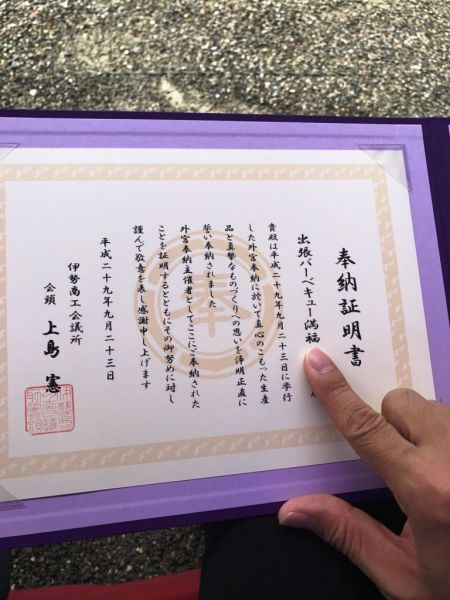 奉納証明書
出張バーベキュー満福
貴殿は平成二十九年九月二十三日に挙行
した外宮奉納に於いて真心のこもった生産
品と真摯なものづくりへの思いを浄明正直に
誓い奉納されました
外宮奉納主催者としてここにご奉納された
ことを証明するとともにその御努めに対し
謹んで敬意を表し感謝申し上げます
平成二十九年九月二十三日
伊勢商工会議所
会頭 上島 憲
奉